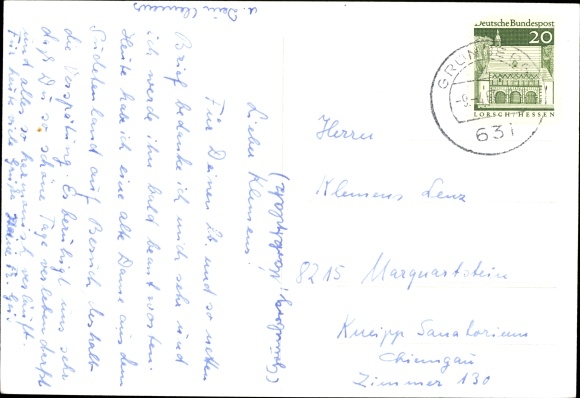 u. Dein Clemens
Lieber Klemens!
Für Deinen lb. und so netten
Brief bedanke ich mich sehr und
ich werde ihn bald beantworten.
Heute habe ich eine alte Dame aus dem
Sudetenland auf Besuch deshalb
die Verspätung. Es beruhigt uns sehr
daß Du so schöne Tage verleben darfst
und alles so harmonisch verläuft.
Für heute viele Grüße
Deutsche Bundespost
20
LORSCH/HESSEN
GRÜN
631
Herrn
Klemens Lenz
8215 Marquartstein
Kneipp Sanatorium
Chiemgau
Zimmer 130